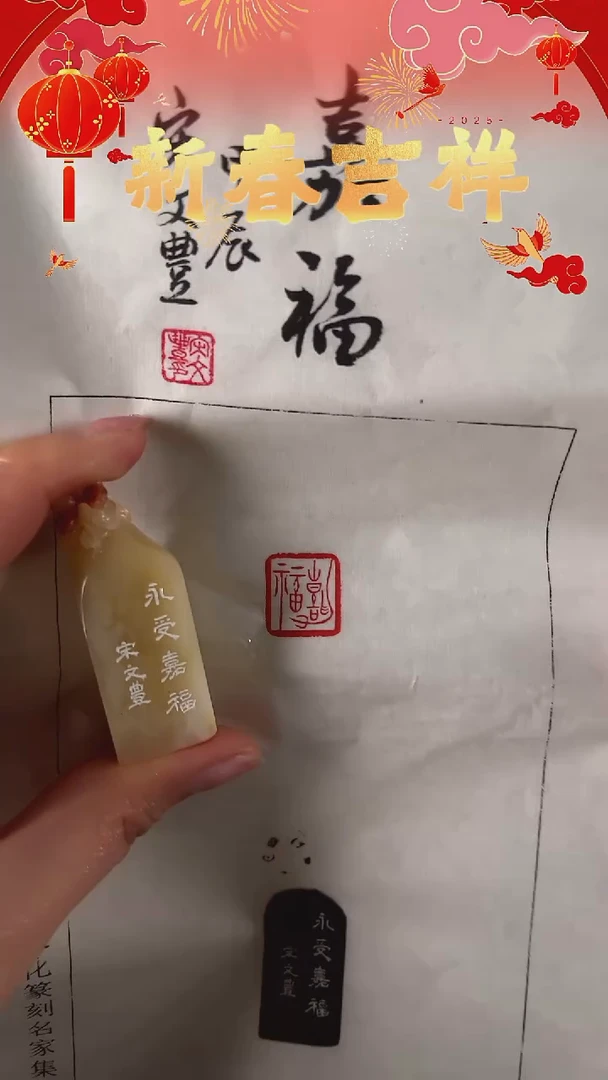 -2025-
新春吉祥
嘉福
甲辰
宋文豊
宋文豊印
嘉福
永受嘉福
宋文豊
永受嘉福
宋文豊
化篆刻名家集